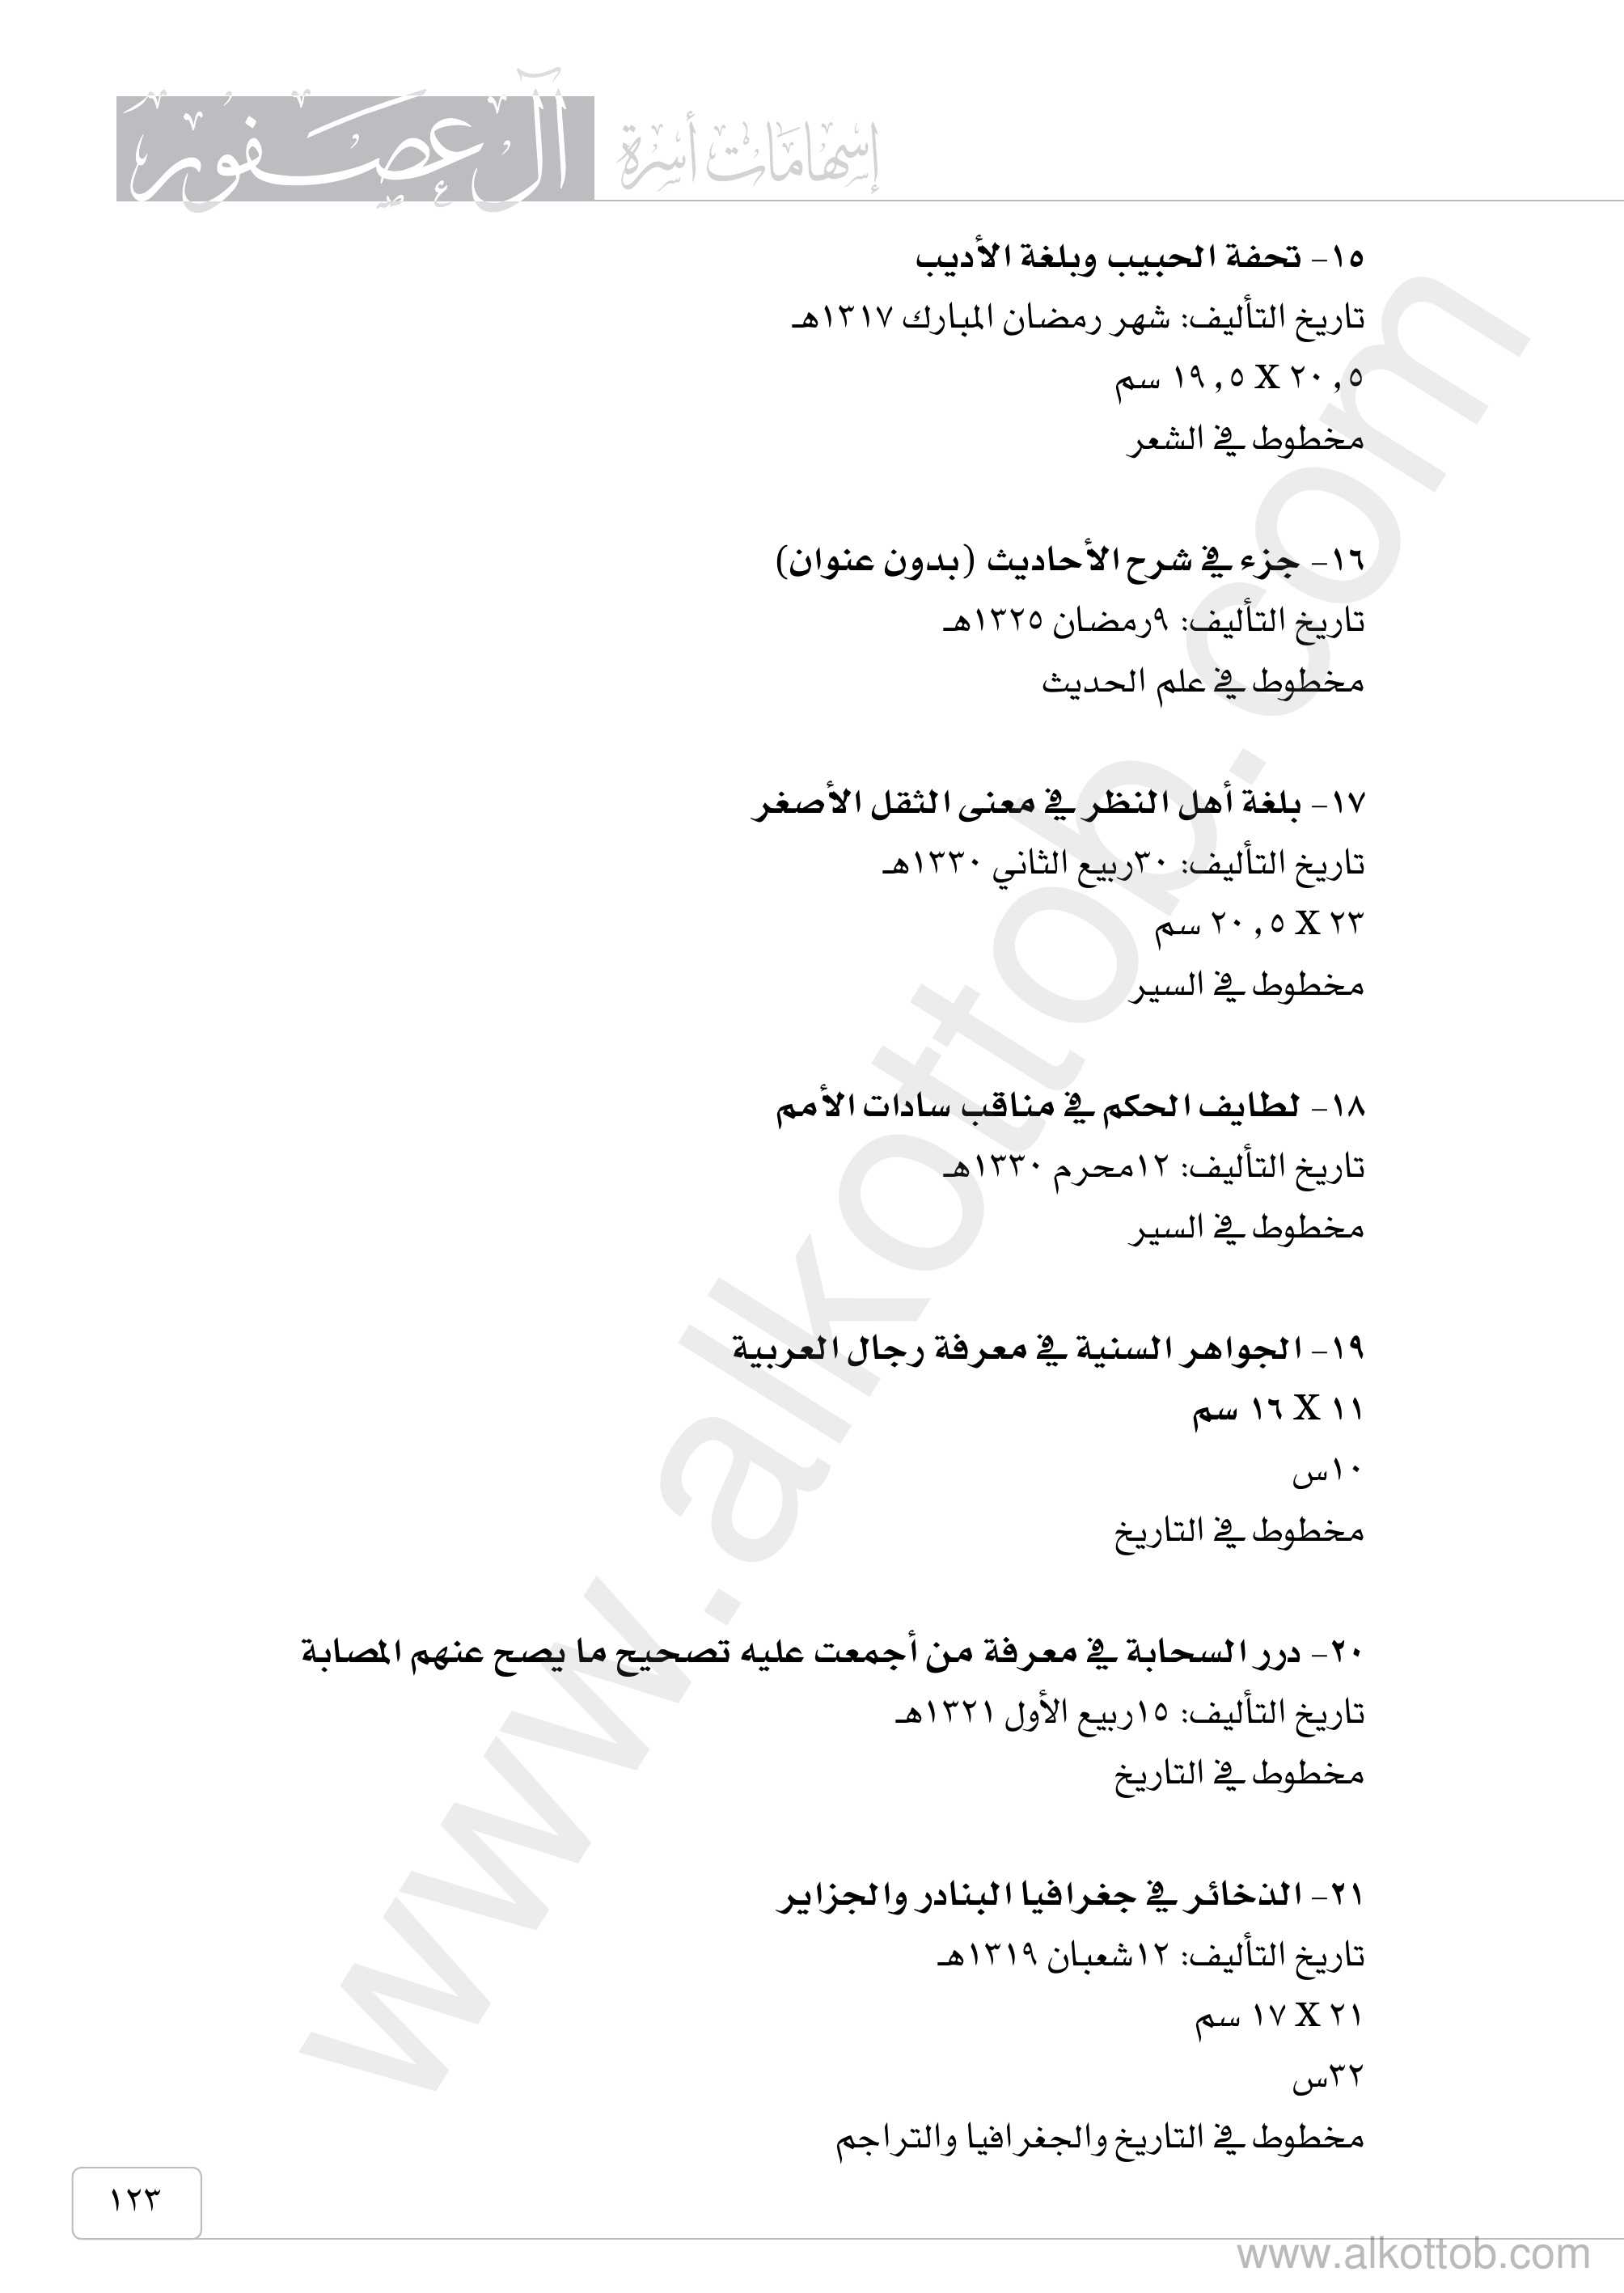 إسهامات أسرة آل عصفور
١٥- تحفة الحبيب وبلغة الأديب
تاريخ التأليف: شهر رمضان المبارك ١٣١٧هـ
٢٠,٥ X ١٩,٥ سم
مخطوط في الشعر
١٦- جزء في شرح الأحاديث (بدون عنوان)
تاريخ التأليف: ٩رمضان ١٣٢٥هـ
مخطوط في علم الحديث
١٧- بلغة أهل النظر في معنى الثقل الأصغر
تاريخ التأليف: ٣٠ربيع الثاني ١٣٣٠هـ
٢٣ X ٢٠,٥ سم
مخطوط في السير
١٨- لطايف الحكم في مناقب سادات الأمم
تاريخ التأليف: ١٢محرم ١٣٣٠هـ
مخطوط في السير
١٩- الجواهر السنية في معرفة رجال العربية
١١ X ١٦ سم
١٠س
مخطوط في التاريخ
٢٠- درر السحابة في معرفة من أجمعت عليه تصحيح ما يصح عنهم المصابة
تاريخ التأليف: ١٥ربيع الأول ١٣٢١هـ
مخطوط في التاريخ
٢١- الذخائر في جغرافيا البنادر والجزاير
تاريخ التأليف: ١٢شعبان ١٣١٩هـ
٢١ X ١٧ سم
٣٢س
مخطوط في التاريخ والجغرافيا والتراجم
١٢٣
www.alkottob.com
www.alkottob.com